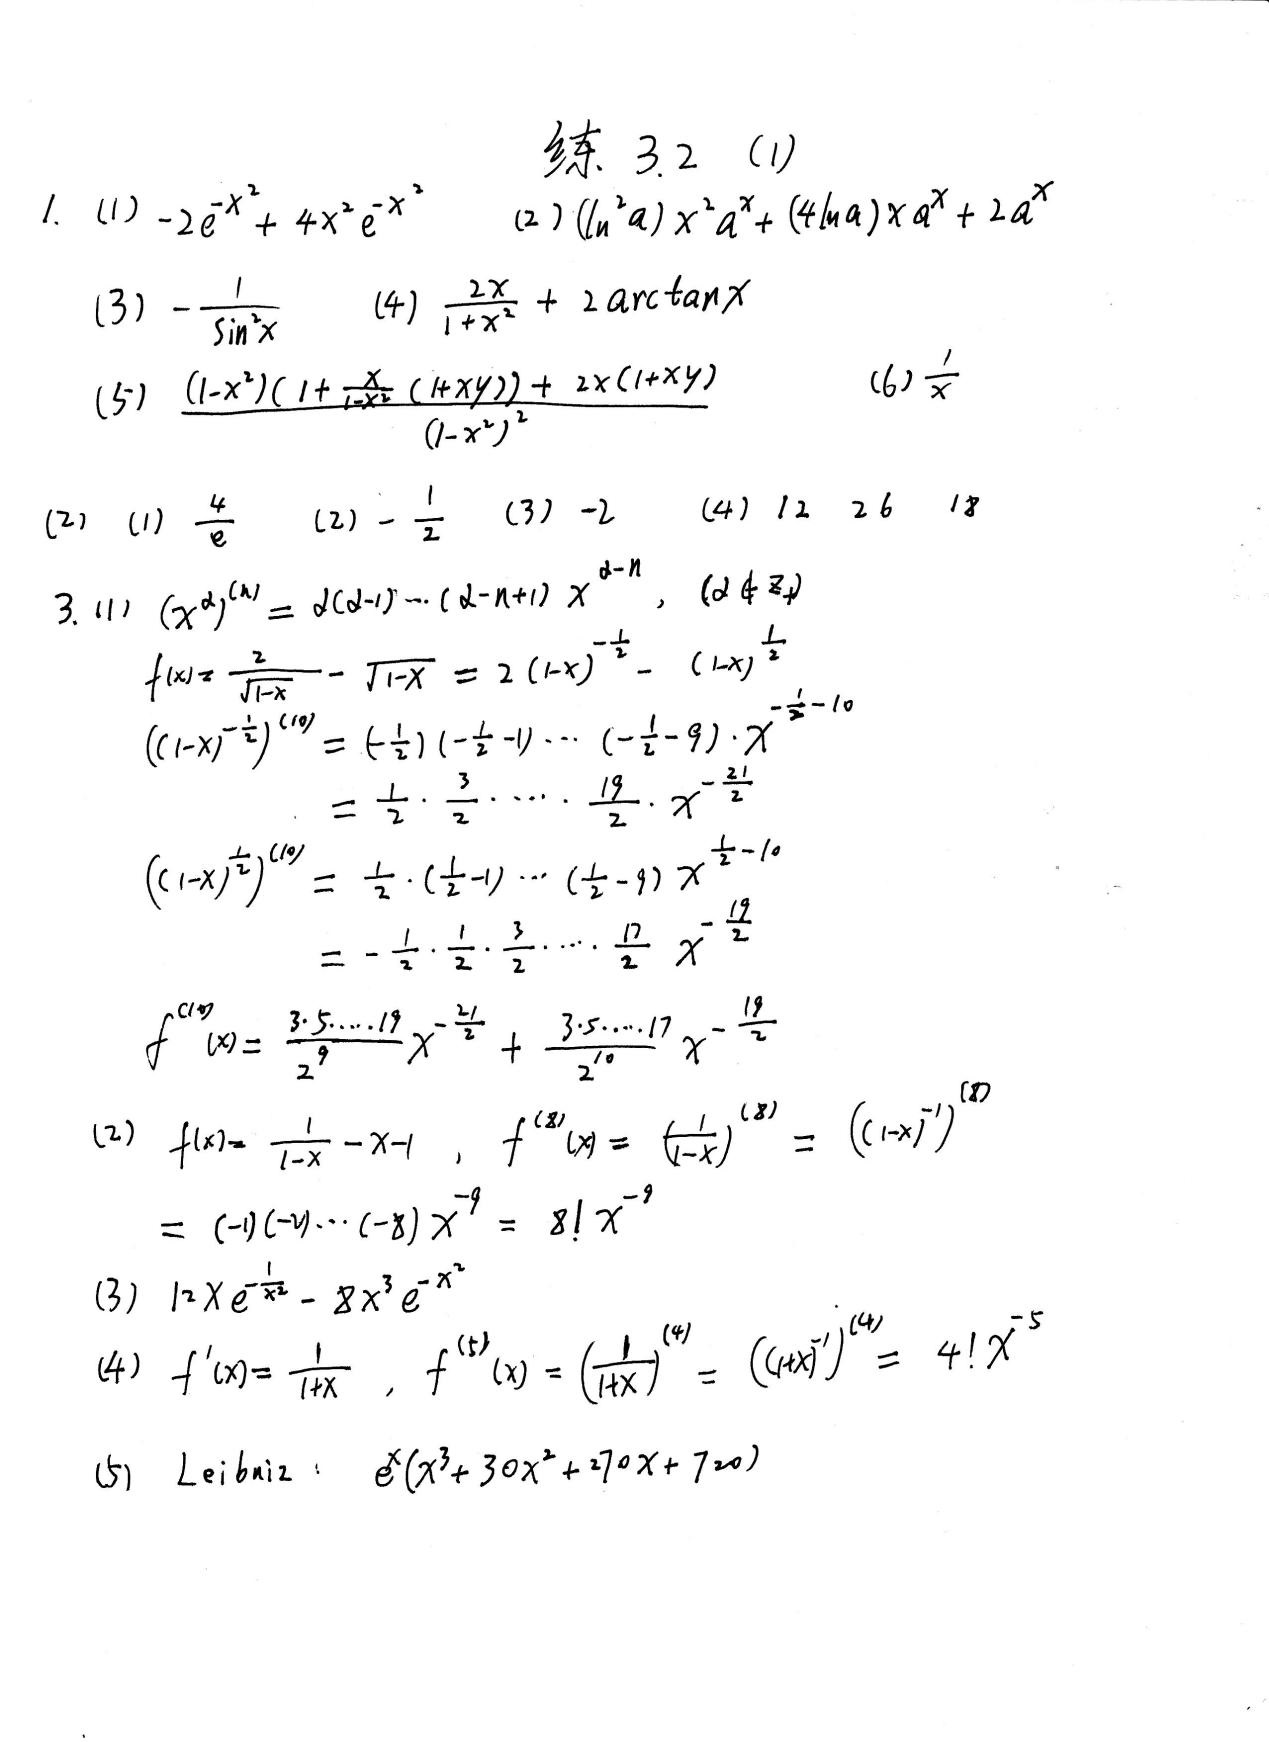 练 3.2 (1)
1. (1) -2e^{-x²} + 4x²e^{-x²} (2) (ln²a)x²a^x + (4lna)xa^x + 2a^x
(3) -\frac{1}{sin²x} (4) \frac{2x}{1+x²} + 2arctanx
(5) \frac{(1-x²)(1+\frac{x}{1-x²}(1+xy)) + 2x(1+xy)}{(1-x²)²} (6) \frac{1}{x}
(2) (1) \frac{4}{e} (2) -\frac{1}{2} (3) -2 (4) 12 26 18
3. (1) (x^α)^{(n)} = α(α-1)···(α-n+1) x^{α-n}, (α∉Z₊)
f(x) = \frac{2}{\sqrt{1-x}} - \sqrt{1-x} = 2(1-x)^{-\frac{1}{2}} - (1-x)^{\frac{1}{2}}
((1-x)^{-\frac{1}{2}})^{(10)} = (-\frac{1}{2})(-\frac{1}{2}-1)···(-\frac{1}{2}-9)·x^{-\frac{1}{2}-10}
= \frac{1}{2}·\frac{3}{2}·····\frac{19}{2}·x^{-\frac{21}{2}}
((1-x)^{\frac{1}{2}})^{(10)} = \frac{1}{2}·(\frac{1}{2}-1)···(\frac{1}{2}-9)x^{\frac{1}{2}-10}
= -\frac{1}{2}·\frac{1}{2}·\frac{3}{2}·····\frac{17}{2} x^{-\frac{19}{2}}
f^{(10)}(x) = \frac{3·5·····19}{2^9}x^{-\frac{21}{2}} + \frac{3·5·····17}{2^{10}}x^{-\frac{19}{2}}
(2) f(x) = \frac{1}{1-x} - x - 1, f^{(8)}(x) = (\frac{1}{1-x})^{(8)} = ((1-x)^{-1})^{(8)}
= (-1)(-2)···(-8)x^{-9} = 8!x^{-9}
(3) 12xe^{-\frac{1}{x²}} - 8x³e^{-x²}
(4) f'(x) = \frac{1}{1+x}, f^{(5)}(x) = (\frac{1}{1+x})^{(4)} = ((1+x)^{-1})^{(4)} = 4!x^{-5}
(5) Leibniz: e^x(x³+30x²+270x+720)